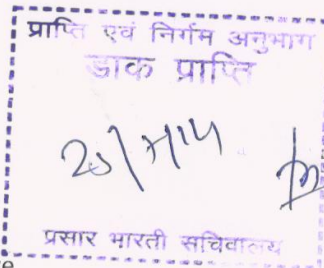 प्राप्ति एवं निर्गम अनुभाग
डाक प्राप्ति
प्रसार भारती सचिवालय